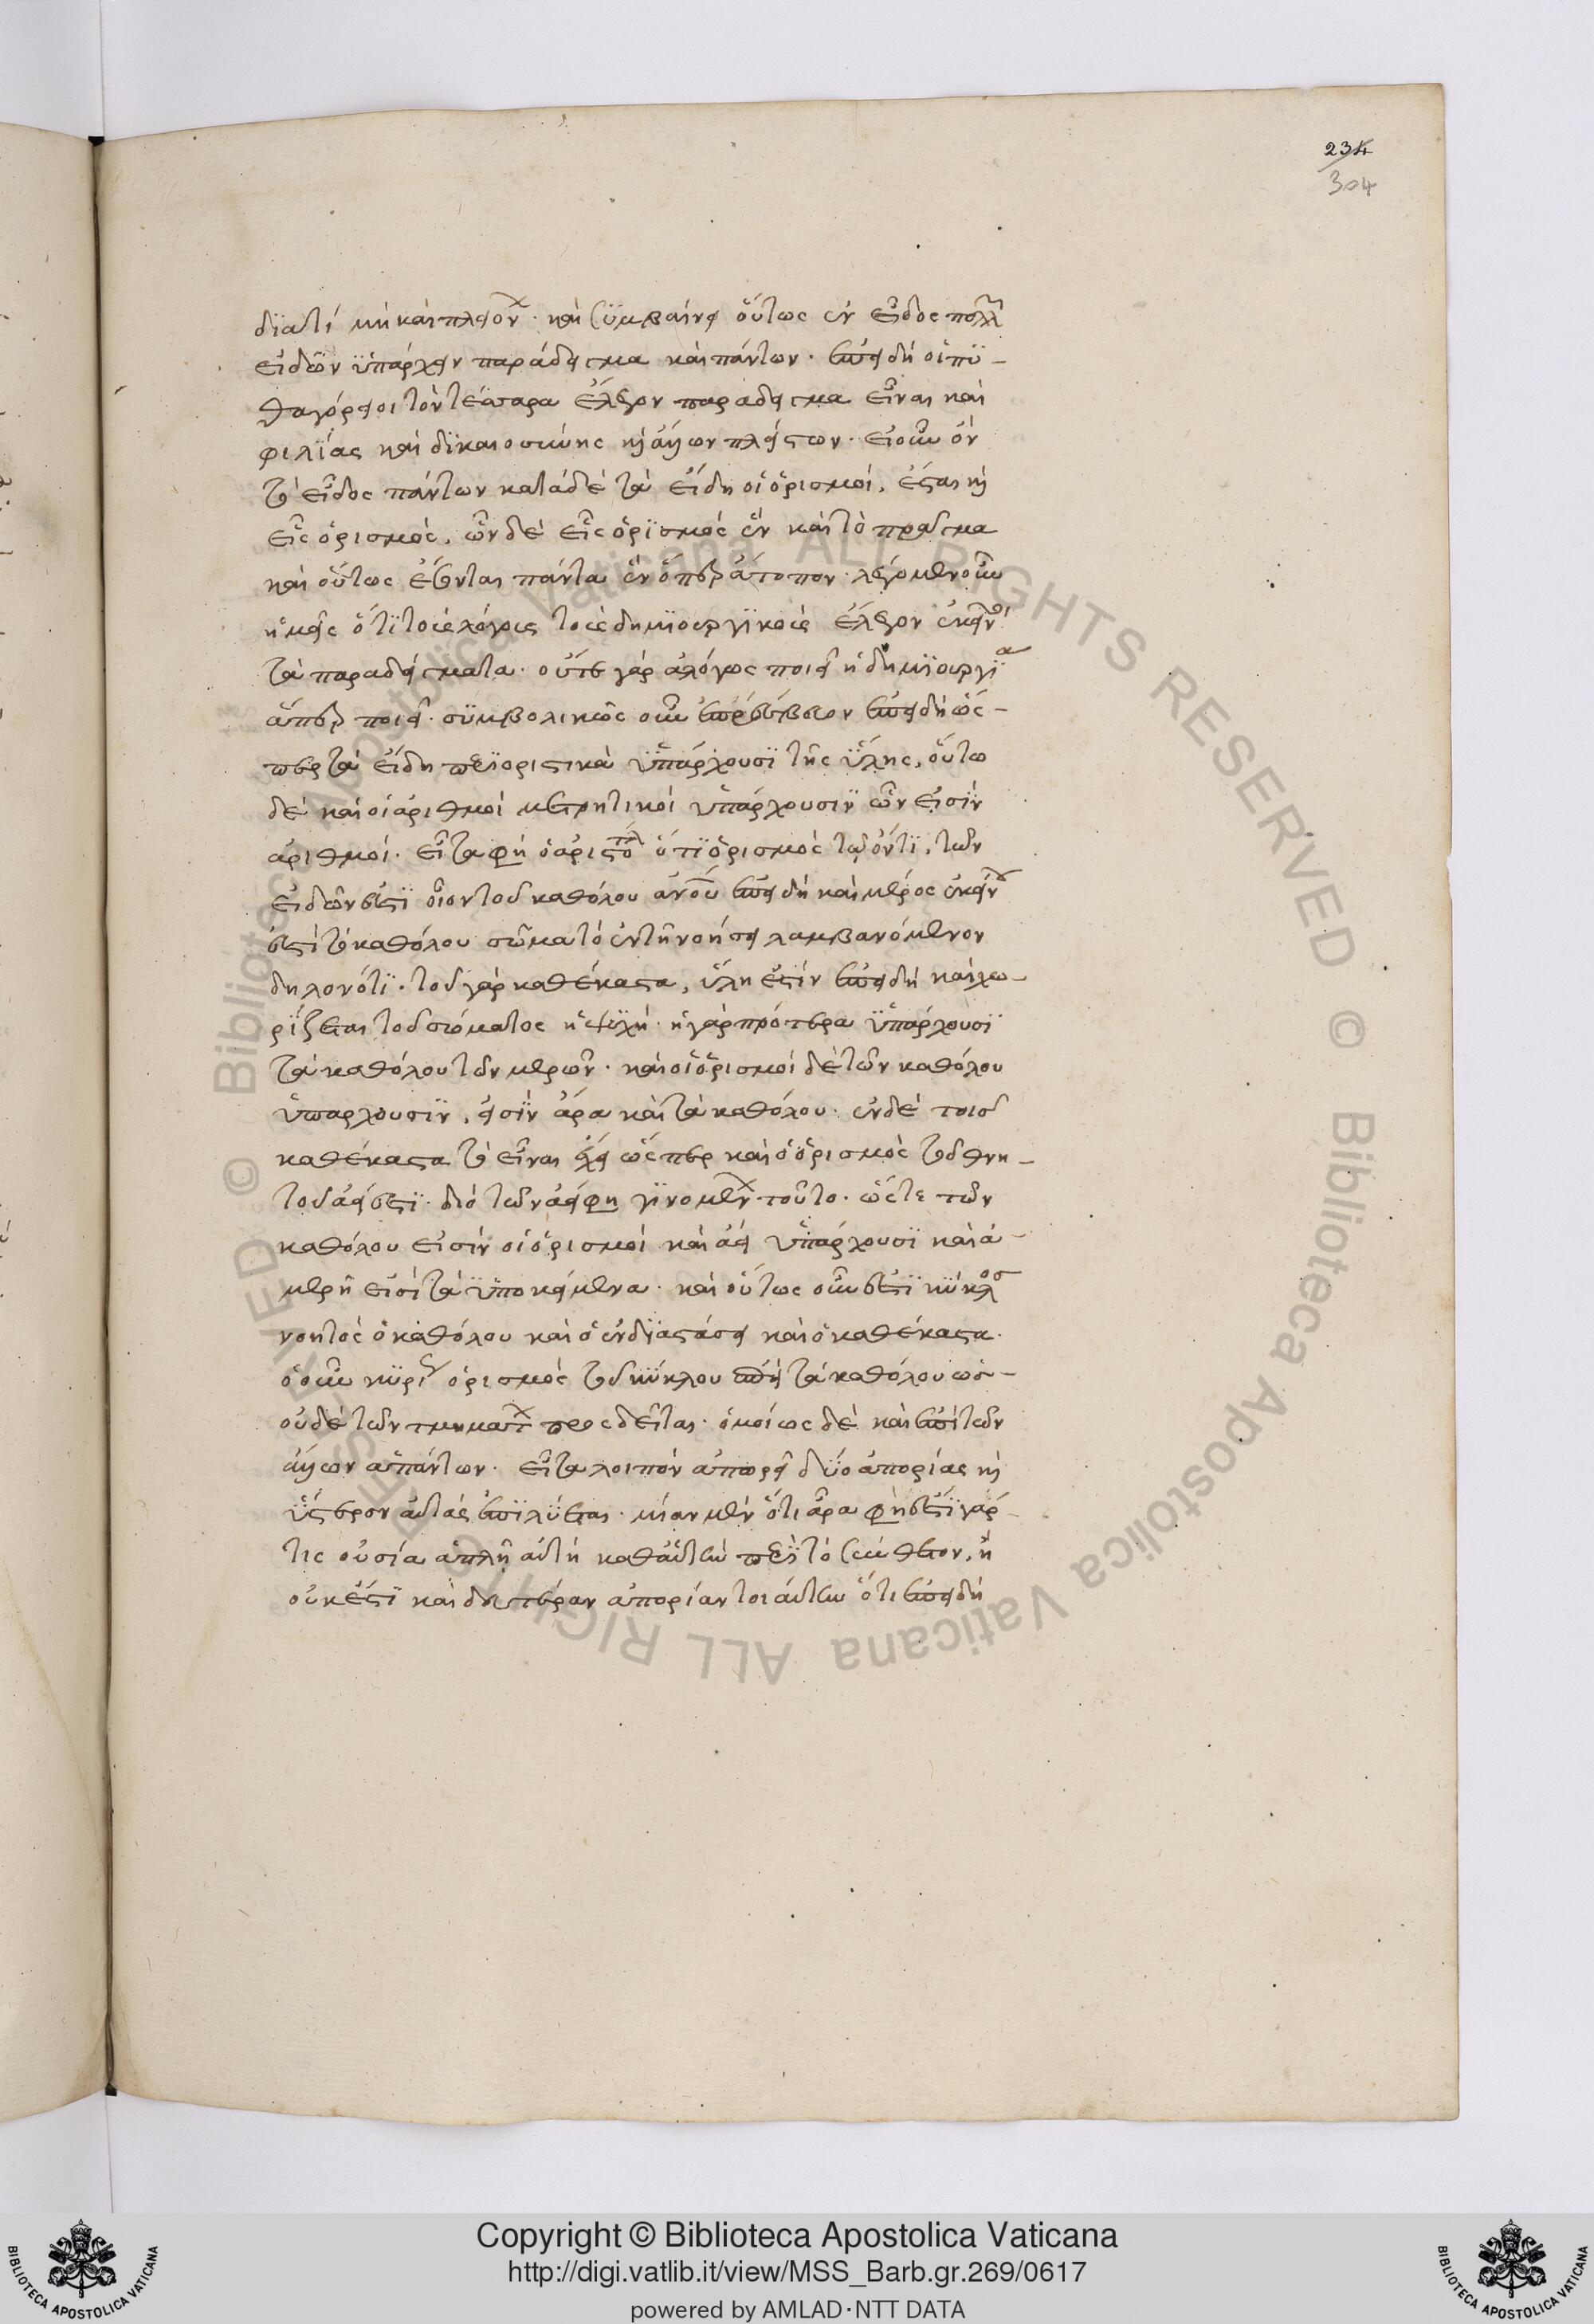 234
304
διατί μὴ καὶ πλειόνων· καὶ συμβαίνει οὕτως ἓν εἶδος πολλῶν
εἰδῶν ὑπάρχειν παράδειγμα καὶ πάντων· ἐπειδὴ οἱ πυ-
θαγόρειοι τὸν τέσσαρα ἔλεγον παράδειγμα εἶναι καὶ
φιλίας καὶ δικαιοσύνης καὶ ἄλλων πλείστων· εἰ οὖν ἓν
τὸ εἶδος πάντων κατὰ δὲ τὰ εἴδη οἱ ὁρισμοί, ἔσται καὶ
εἷς ὁρισμός, ὧν δὲ εἷς ὁρισμὸς ἓν καὶ τὸ πρᾶγμα
καὶ οὕτως ἔσονται πάντα ἓν ὅπερ ἄτοπον· λέγομεν οὖν
ἡμεῖς ὅτι τοῖς λόγοις τοῖς δημιουργικοῖς ἔλεγον ἐκεῖνοι
τὰ παραδείγματα· οὔτε γὰρ ἀλόγως ποιεῖ ἡ δημιουργία
ἅπερ ποιεῖ· συμβολικῶς οὖν ἐπρέσβευον ἐπειδὴ ὥς-
περ τὰ εἴδη περιοριστικὰ ὑπάρχουσι τῆς ὕλης, οὕτω
δὲ καὶ οἱ ἀριθμοὶ μετρητικοὶ ὑπάρχουσιν ὧν εἰσὶν
ἀριθμοί· εἶτα φη ὁ ἀριστοτέλης ὅτι ὁρισμὸς τῷ ὄντι, τῶν
εἰδῶν ἐστὶ οἷον τοῦ καθόλου ἀνθρώπου ἐπειδὴ καὶ μέρος ἐκείνου
ἐστὶ τὸ καθόλου σῶμα τὸ ἐν τῇ νοήσει λαμβανόμενον
δηλονότι· τοῦ γὰρ καθέκαστα, ὕλη ἐστὶν ἐπειδὴ καὶ χω-
ρίζεται τοῦ σώματος ἡ ψυχή· ἢ γὰρ πρότερα ὑπάρχουσι
τὰ καθόλου τῶν μερῶν· καὶ οἱ ὁρισμοὶ δὲ τῶν καθόλου
ὑπάρχουσιν, εἰσὶν ἄρα καὶ τὰ καθόλου· ἐν δὲ τοῖς
καθέκαστα τὸ εἶναι ἔχει ὥσπερ καὶ ὁ ὁρισμὸς τοῦ θνη-
τοῦ ἀεί ἐστι· διὸ τῶν ἀεί φη γινομένων τοῦτο· ὥστε τῶν
καθόλου εἰσὶν οἱ ὁρισμοὶ καὶ ἀεὶ ὑπάρχουσι καὶ ἀ-
μερῆ εἰσὶ τὰ ὑποκείμενα· καὶ οὕτως οὖν ἐστὶ κύκλος
νοητὸς ὁ καθόλου καὶ ὁ ἐν διαστάσει καὶ ὁ καθέκαστα·
ὁ οὖν κυρίως ὁρισμὸς τοῦ κύκλου ἐπὶ τὰ καθόλου ὡς
οὐδὲ τῶν τμημάτων προςδεῖται· ὁμοίως δὲ καὶ ἐπὶ τῶν
ἄλλων ἁπάντων· εἶτα λοιπὸν ἀπορεῖ δύο ἀπορίας καὶ
ὕστερον αὐτὰς ἐπιλύεται· μίαν μὲν ὅτι ἆρα φὴ ἐστὶ γάρ
τις οὐσία ἁπλῆ αὐτὴ καθ' αὑτὴν περὶ τὸ σύνθετον, ἢ
οὐκ ἔστι καὶ δευτέραν ἀπορίαν τοιαύτην ὅτι ἐπειδὴ